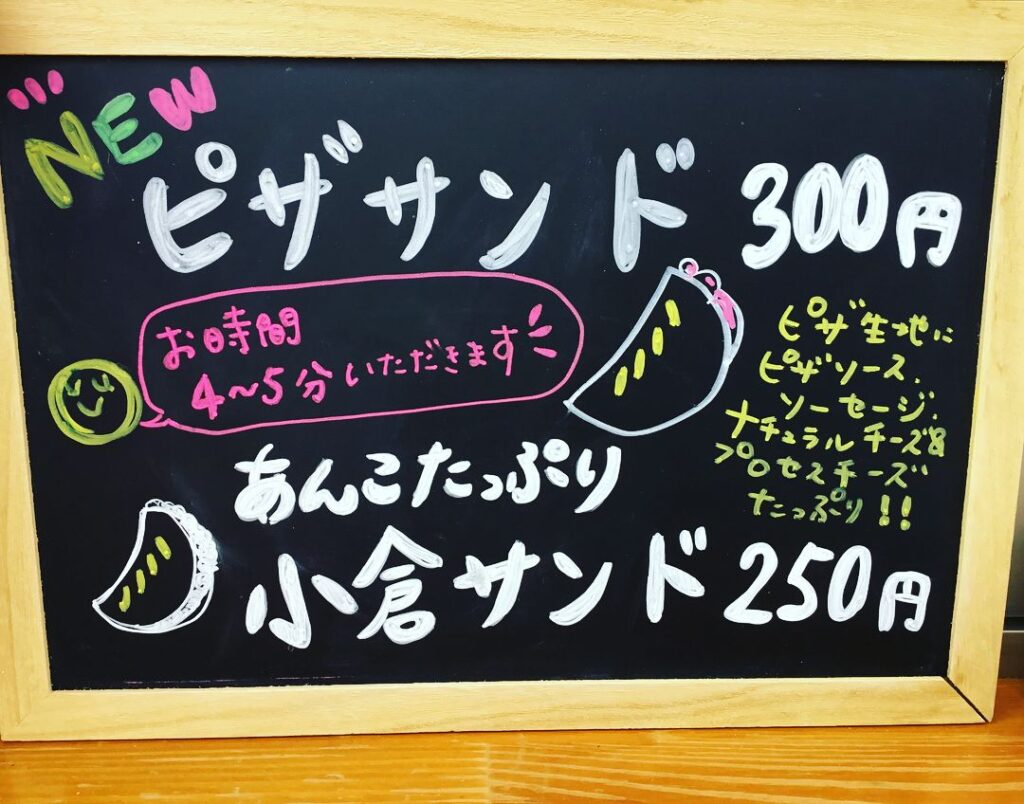 NEW
ピザサンド 300円
お時間
4~5分いただきます
ピザ生地に
ピザソース、
ソーセージ、
ナチュラルチーズ&
プロセスチーズ
たっぷり!!
あんこたっぷり
小倉サンド 250円